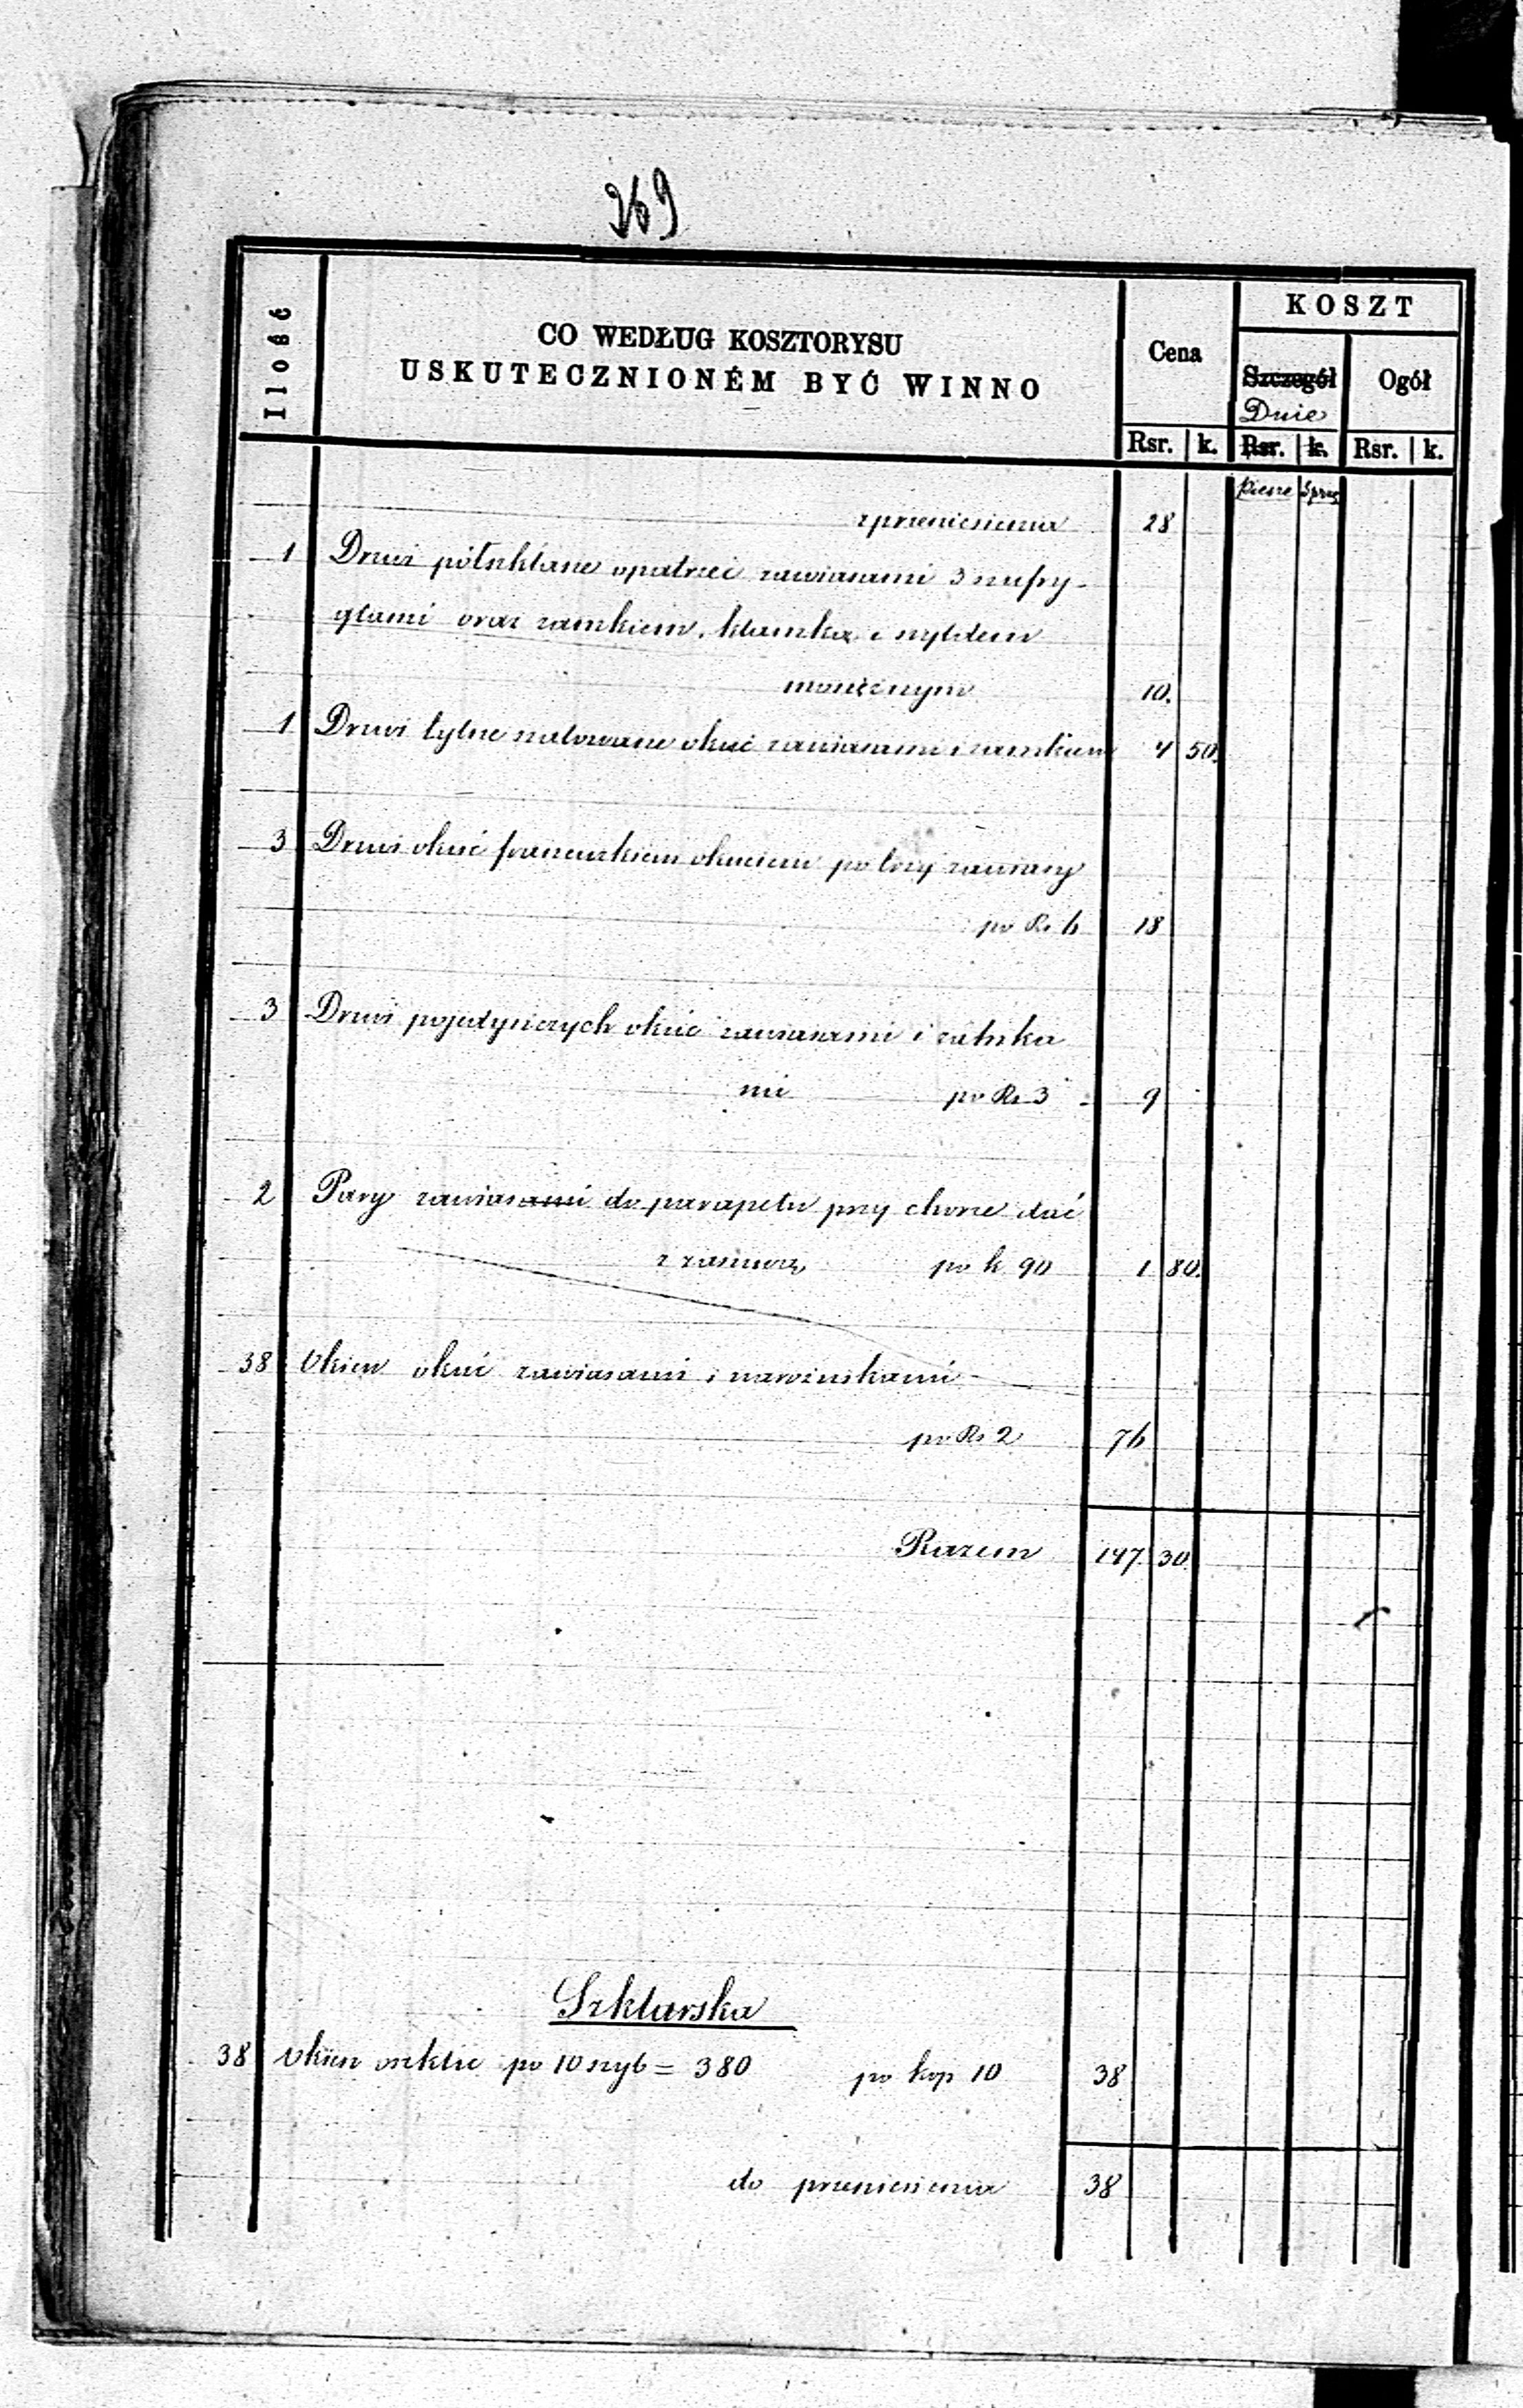 269
Ilość
CO WEDŁUG KOSZTORYSU
USKUTECZNIONÉM BYĆ WINNO
Cena
KOSZT
Szczegół
Dnie
Ogół
Rsr. k. Rsr. k. Rsr. k.
Piesze Sprzę
z przeniesienia 28
1 Drzwi półszklane opatrzeć zawiasami 3 szufry-
glami oraz zamkiem, klamką i szyldem
mosiężnym 10.
1 Drzwi tylne malowane okuć zawiasami i zamkiem 4 50.
3 Drzwi okuć francuzkiem okuciem po trzy zawiasy
po Rs 6 18
3 Drzwi pojedynczych okuć zawiasami i zatrzka
mi po Rs 3 9
2 Pary zawiasami do parapetu przy chórze dać
z zasuwą po k 90 1 80.
38 Okien okuć zawiasami i narożnikami
po Rs 2 76
Razem 147. 30.
Szklarska
38 Okien oszklić po 10 szyb = 380 po kop 10 38
do przeniesienia 38